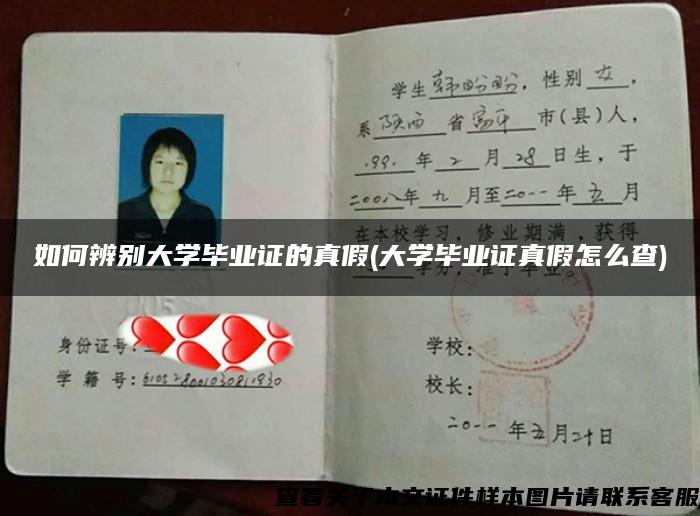 学生韩盼盼，性别女，
系陕西省富平市(县)人，
199.年2月28日生，于
二00八年九月至二0一一年五月
在本校学习，修业期满，获得
学分，准予毕业。
如何辨别大学毕业证的真假(大学毕业证真假怎么查)
身份证号:
学籍号:
学校:
校长:
二0一一年五月二十日
查看关于本文证件样本图片请联系客服